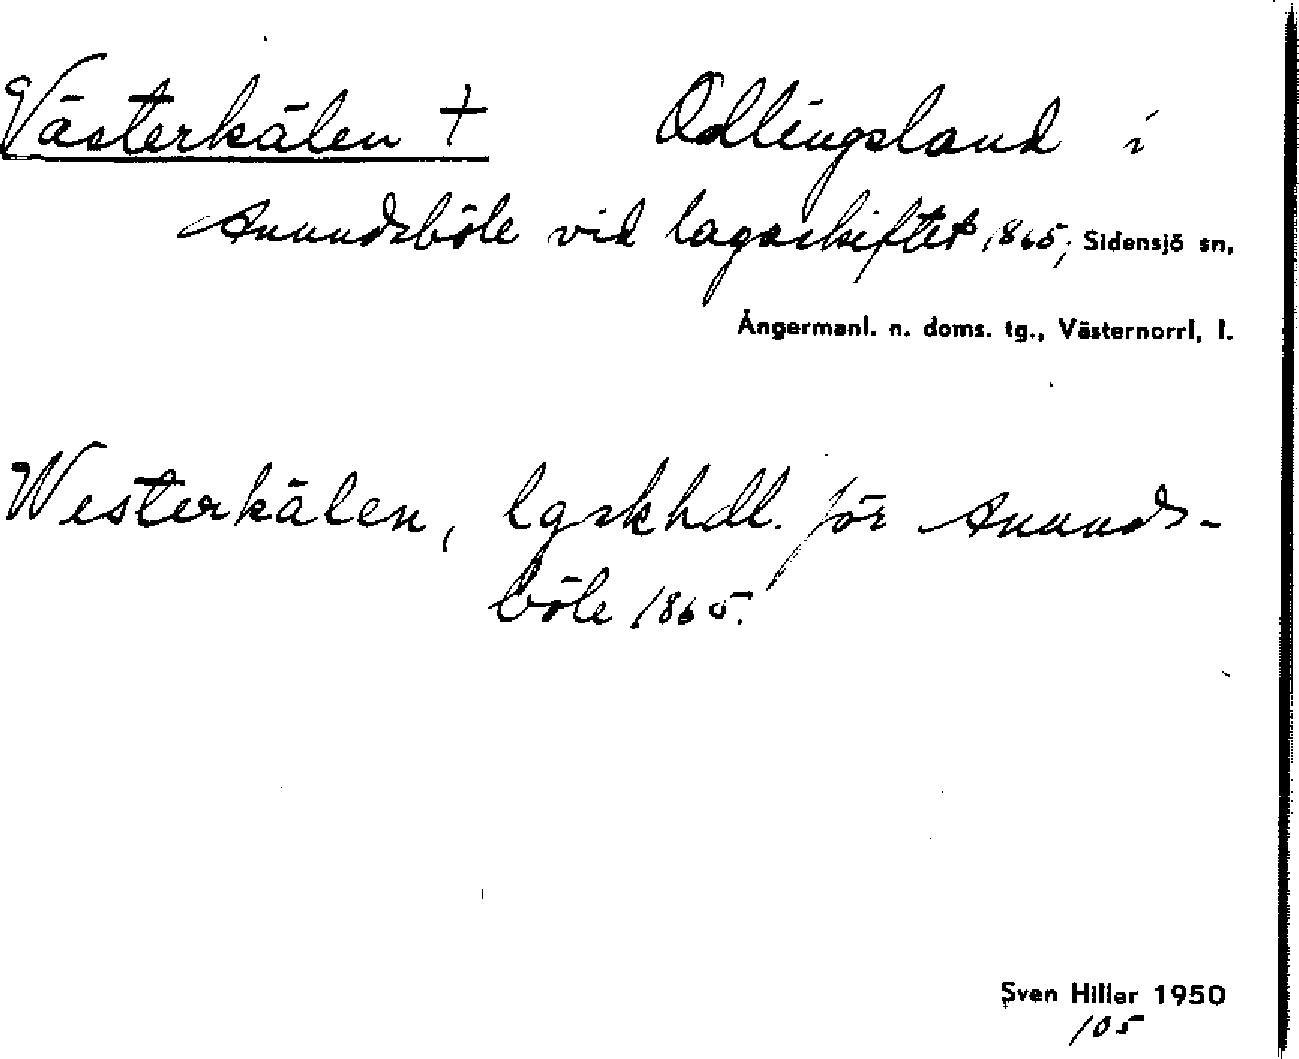 Västerkälen + Odlingsland i
Anundsböle vid lagaskiftet 1865; Sidensjö sn,
Ångermanl. n. doms. tg., Västernorrl. l.
Westerkälen, lgskhdl. för Anunds-
böle 1865.
Sven Hiller 1950
105